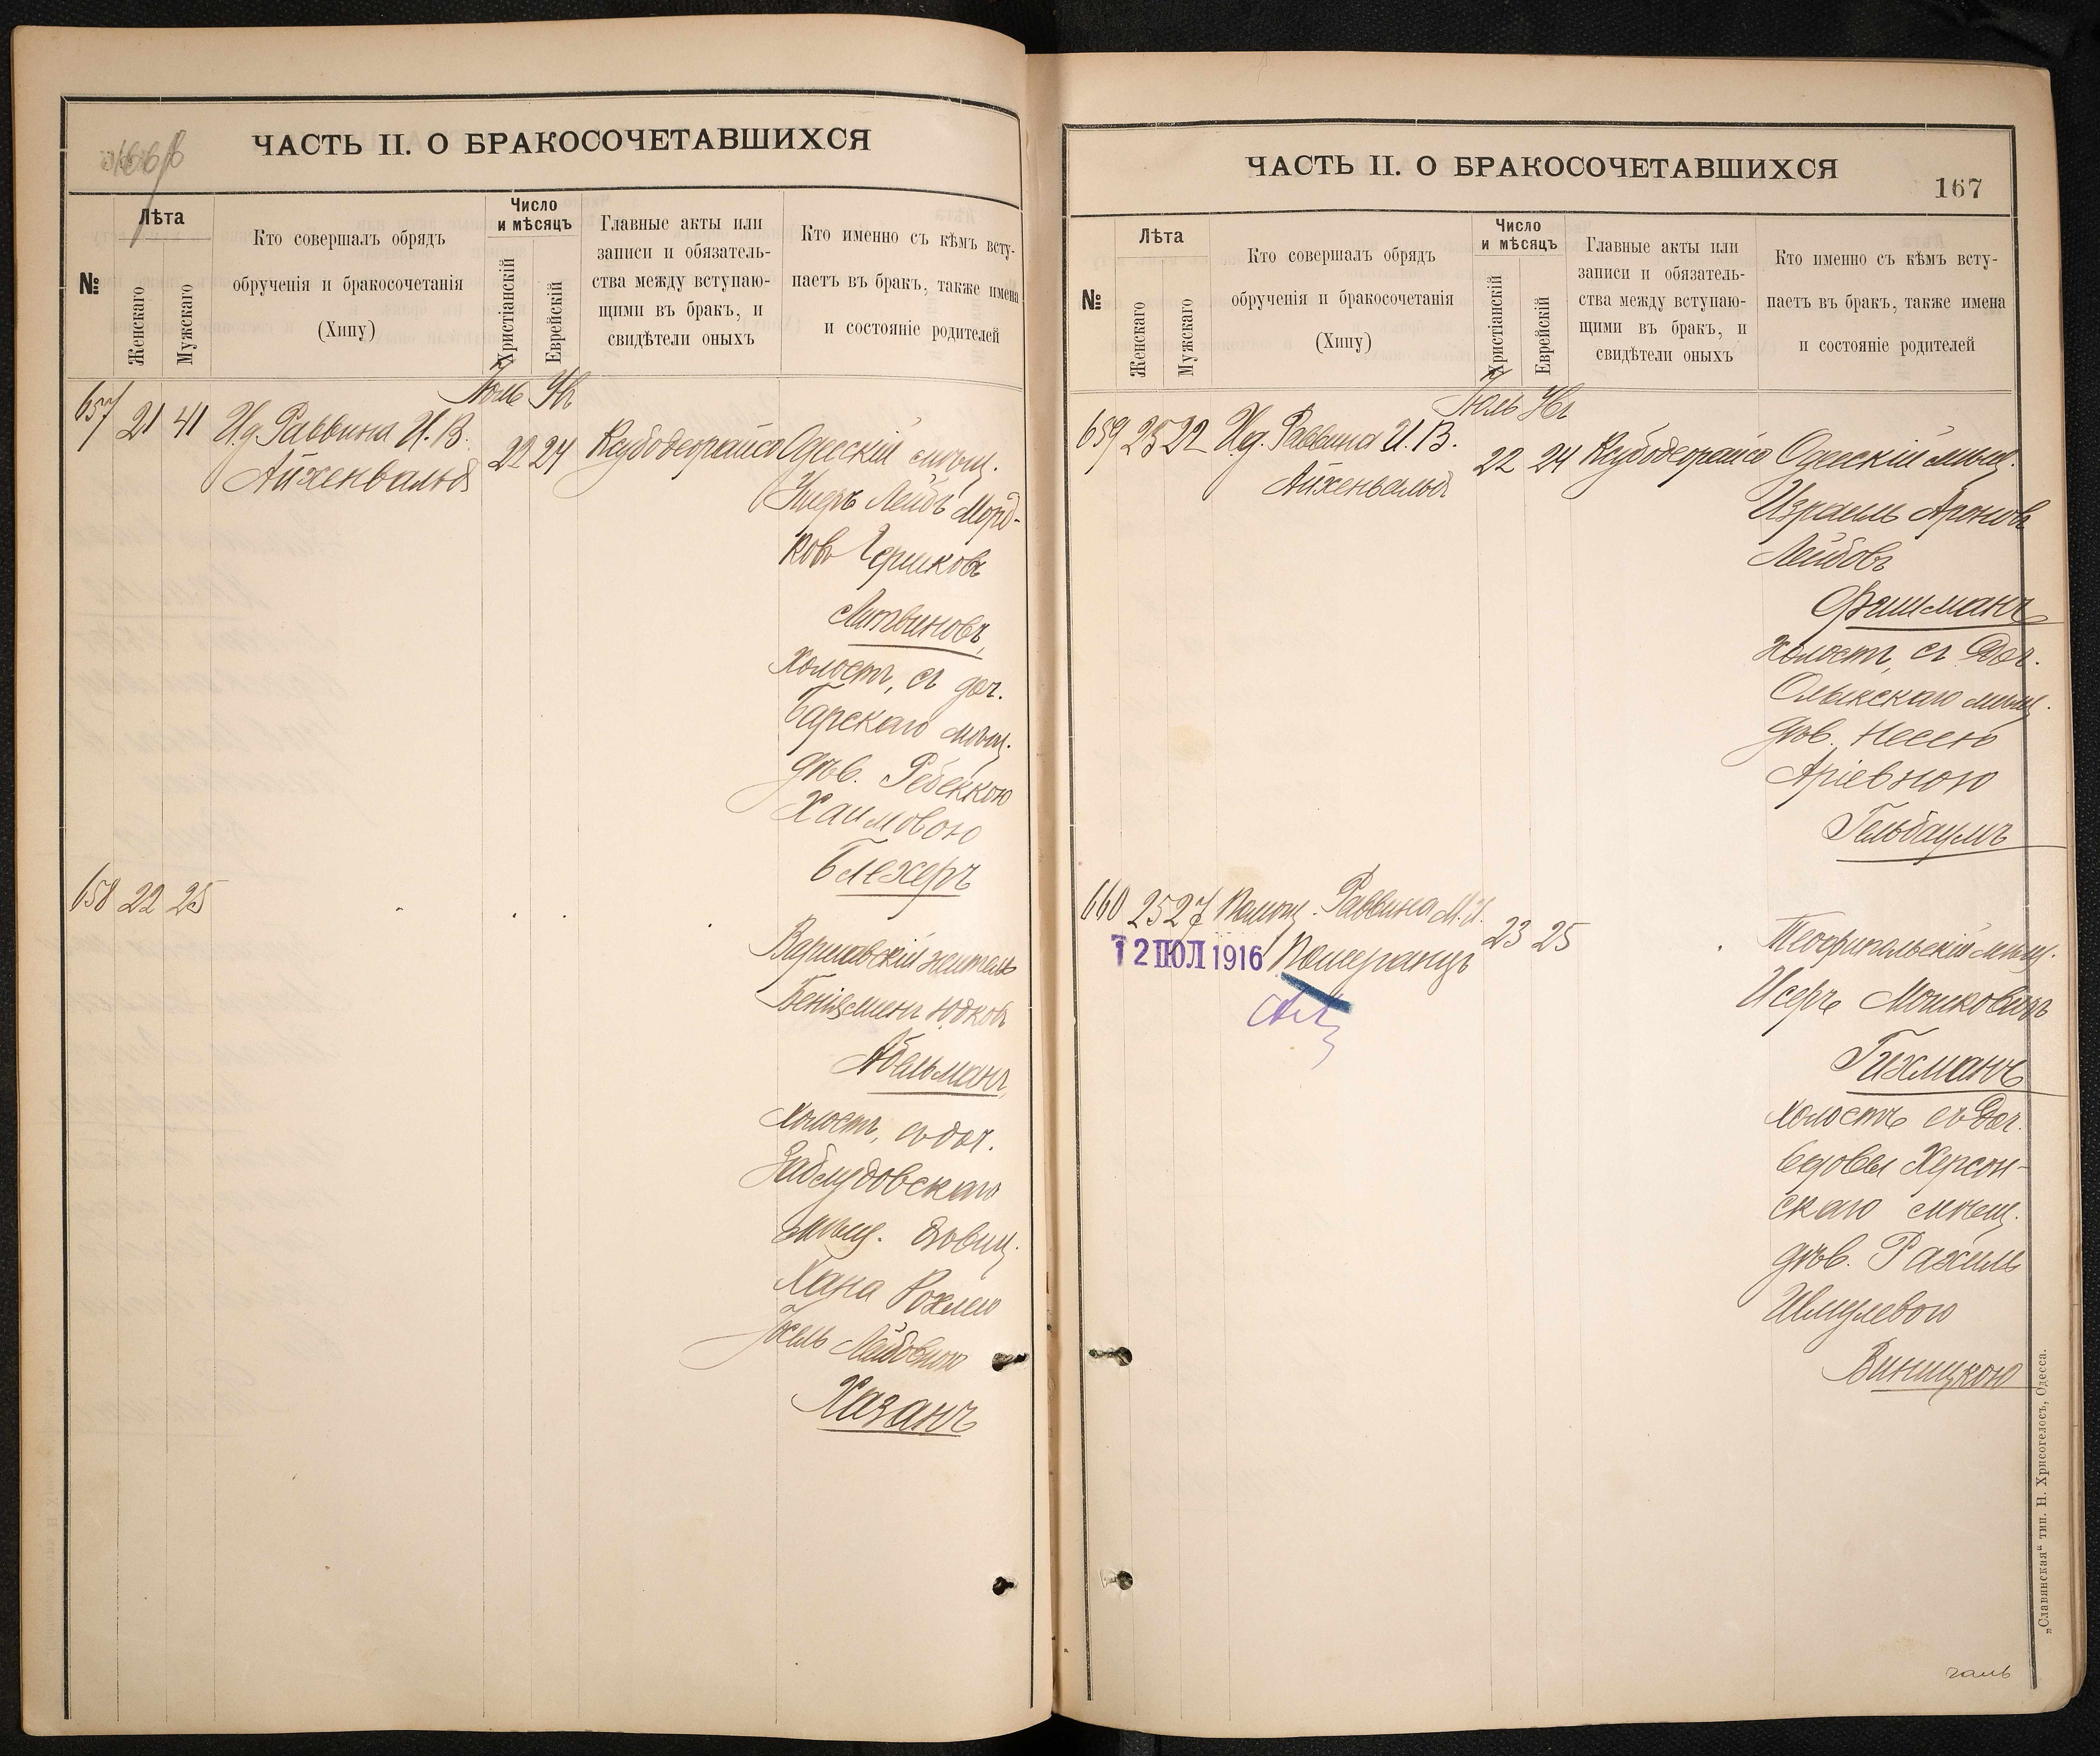 ЧАСТЬ II. О БРАКОСОЧЕТАВШИХСЯ
№
Лѣта
Женскаго
Мужскаго
Кто совершалъ обрядъ
обрученія и бракосочетанія
(Хипу)
Число
и мѣсяцъ
Христіанскій
Еврейскій
Главные акты или
записи и обязатель-
ства между вступаю-
щими въ бракъ, и
свидѣтели оныхъ
Кто именно съ кѣмъ всту-
паетъ въ бракъ, также имена
и состояніе родителей
657 21 41 И.д. Раввина И. В.
Айхенвальд
Іюль
22 24 Ксубодеорайса Одесскій мѣщ.
Лейбъ Морд-
ковъ Гершковъ
Литвиновъ,
холостъ, съ доч.
Барскаго мѣщ.
дѣв. Ребеккою
Хаимовою
Блехеръ
658 22 25
Варшавскій житель
Беніяменъ Юдковъ
Абельманъ,
холостъ, съ доч.
Заблудовскаго
мѣщ.
Хана Рохлею
Іосель Лейбовною
Хазанъ
ЧАСТЬ II. О БРАКОСОЧЕТАВШИХСЯ
167
№
Лѣта
Женскаго
Мужскаго
Кто совершалъ обрядъ
обрученія и бракосочетанія
(Хипу)
Число
и мѣсяцъ
Христіанскій
Еврейскій
Главные акты или
записи и обязатель-
ства между вступаю-
щими въ бракъ, и
свидѣтели оныхъ
Кто именно съ кѣмъ всту-
паетъ въ бракъ, также имена
и состояніе родителей
659 23 22 И.д. Раввина И. В.
Айхенвальд
Іюль
22 24 Ксубодеорайса Одесскій мѣщ.
Израиль Ароновъ
Лейбовъ
Фишманъ
холостъ, съ доч.
Олыкскаго мѣщ.
дѣв. Несею
Аріевною
Гельбаумъ
660 25 27 Помощ. Раввина М. И.
Померанцъ
12 ІЮЛ 1916
23 25
Теофипольскій мѣщ.
Исеръ Мошковичъ
Гихманъ
холостъ съ доч.
вдовы Херсон-
скаго мѣщ.
дѣв. Рахиль
Шмулевою
Виницкою
„Славянская“ тип. Н. Хрисогелосъ, Одесса.